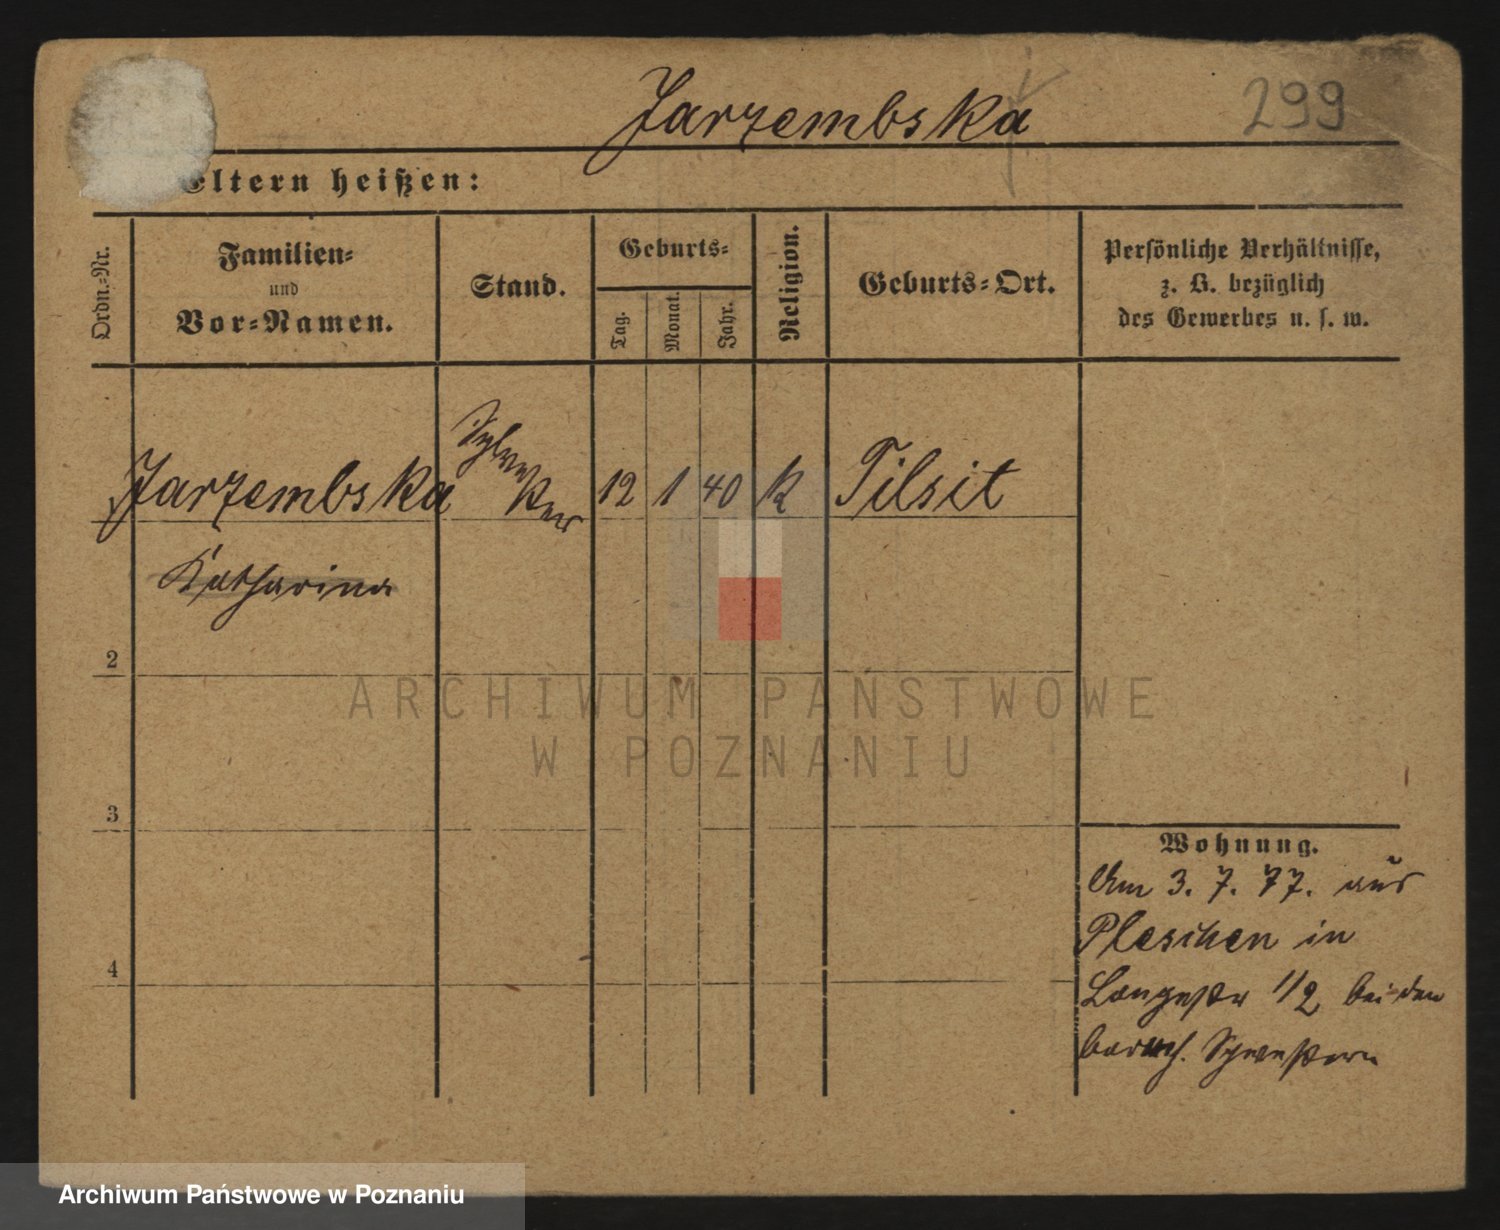 Jarzembska
299
Eltern heißen:
Ordn.-Nr.
Familien-
und
Vor-Namen.
Stand.
Geburts-
Tag.
Monat.
Jahr.
Religion.
Geburts-Ort.
Persönliche Verhältnisse,
z. B. bezüglich
des Gewerbes u. s. w.
Jarzembska
Schwe
ster
12
1
40
k
Tilsit
Katharina
2
3
4
Wohnung.
Am 3. 7. 77. aus
Pleschen in
Langestr 1/2 bei den
barmh. Schwestern
ARCHIWUM PAŃSTWOWE
W POZNANIU
Archiwum Państwowe w Poznaniu